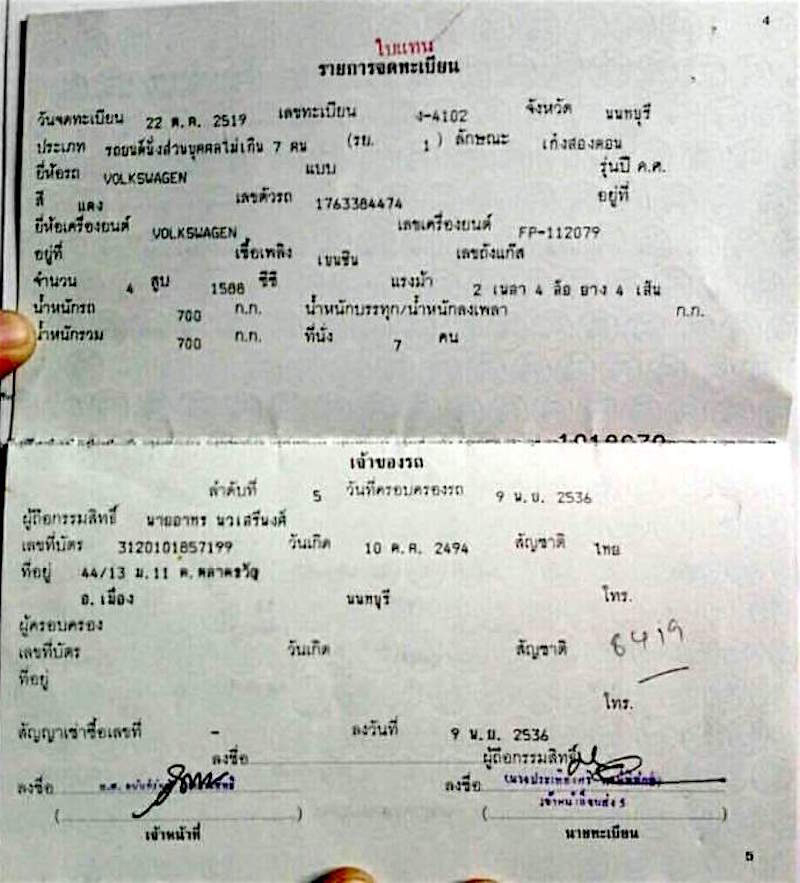 4
ใบแทน
รายการจดทะเบียน
วันจดทะเบียน 22 ต.ค. 2519 เลขทะเบียน ง-4102 จังหวัด นนทบุรี
ประเภท รถยนต์นั่งส่วนบุคคลไม่เกิน 7 คน (รย. 1 ) ลักษณะ เก๋งสองตอน
ยี่ห้อรถ VOLKSWAGEN แบบ รุ่นปี ค.ศ.
สี แดง เลขตัวรถ 1763384474 อยู่ที่
ยี่ห้อเครื่องยนต์ VOLKSWAGEN เลขเครื่องยนต์ FP-112079
อยู่ที่ เชื้อเพลิง เบนซิน เลขถังแก๊ส
จำนวน 4 สูบ 1588 ซีซี แรงม้า 2 เพลา 4 ล้อ ยาง 4 เส้น
น้ำหนักรถ 700 ก.ก. น้ำหนักบรรทุก/น้ำหนักลงเพลา ก.ก.
น้ำหนักรวม 700 ก.ก. ที่นั่ง 7 คน
เจ้าของรถ
ลำดับที่ 5 วันที่ครอบครองรถ 9 พ.ย. 2536
ผู้ถือกรรมสิทธิ์ นายอาทร นวเสรีพงศ์
เลขที่บัตร 3120101857199 วันเกิด 10 ต.ค. 2494 สัญชาติ ไทย
ที่อยู่ 44/13 ม.11 ต.ตลาดขวัญ
อ.เมือง นนทบุรี โทร.
ผู้ครอบครอง
เลขที่บัตร วันเกิด สัญชาติ 8419
ที่อยู่
โทร.
สัญญาเช่าซื้อเลขที่ - ลงวันที่ 9 พ.ย. 2536
ลงชื่อ ผู้ถือกรรมสิทธิ์
ลงชื่อ ลงชื่อ
เจ้าหน้าที่ขนส่ง 5
( ) ( )
เจ้าหน้าที่ นายทะเบียน
5